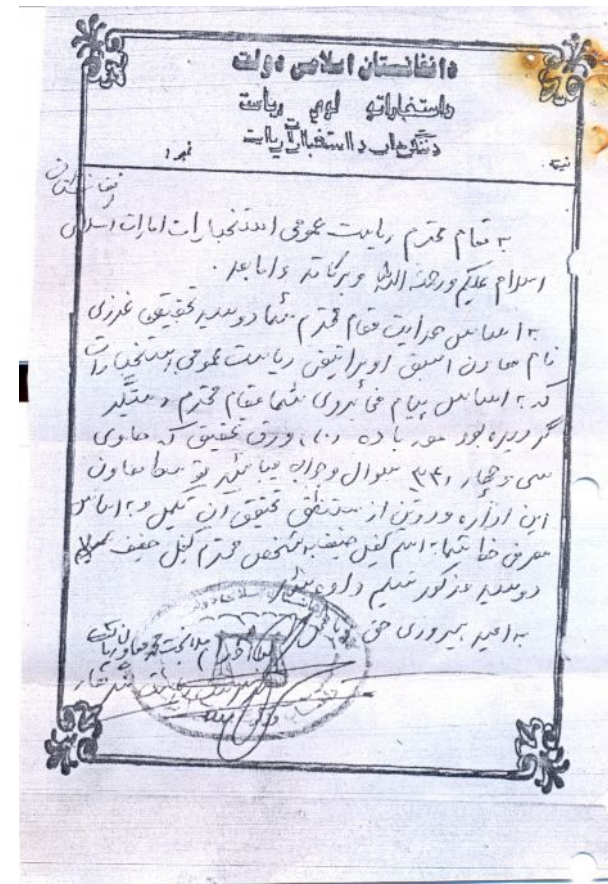 د افغانستان اسلامی دولت
د استخباراتو لوی ریاست
د ننگرهار د استخباراتو ریاست
نمبر /
نیټه
افغانستان
به مقام محترم ریاست عمومی استخبارات امارات اسلامی
اسلام علیکم ورحمة الله وبرکاته و اما بعد .
به اساس هدایت مقام محترم شما دوسیه تحقیقی غرزی
نام معاون اسبق اوپراتیفی ریاست عمومی استخبارات
که به اساس پیام شما مقام محترم دستگیر
گردیده بود مورد باده (۱۰) ورق تحقیق که حاوی
سی و چهار (۳۴) سوال و جواب میباشد توسط معاون
این اداره و دوتن از مستنطق تحقیق آن تکمیل و به اساس
معرفی خط شما به اسم کفیل حنیف به شخص محترم کفیل حنیف
دوسیه مذکور تسلیم داده شد
به امید پیروزی حق